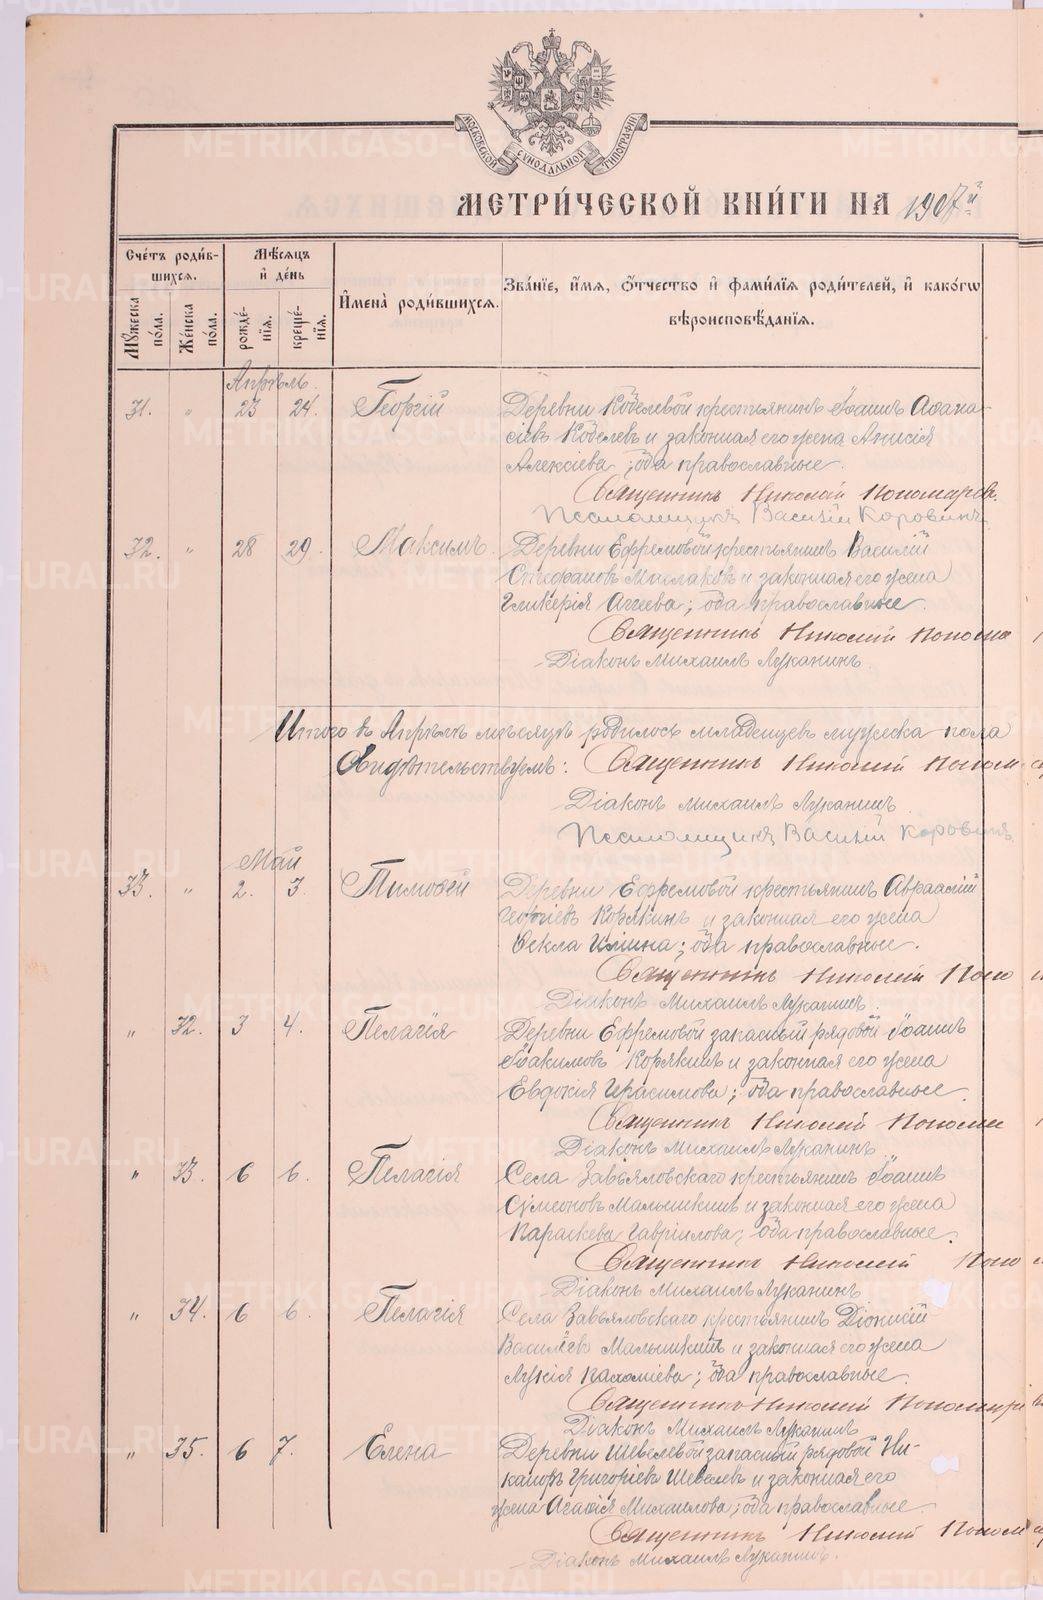 МОСКОВСКОЙ СѴНОДАЛЬНОЙ ТИПОГРАФІИ
МЕТРИ́ЧЕСКОЙ КНИ́ГИ НА 1907й
Сче́тъ роди́в-
шихсѧ.
Мѣ́сѧцъ
и҆ де́нь
И҆мена̀ роди́вшихсѧ.
Зва́нїе, и҆́мѧ, ѻ҆́тчество и҆ фами́лїѧ роди́телей, и҆ како́гѡ
вѣроисповѣ́данїѧ.
Мꙋ́жеска по́ла.
Же́нска по́ла.
рожде́-
нїѧ.
креще́-
нїѧ.
Апрѣль.
31. " 23 24. Георгій Деревни Кобелевой крестьянинъ Іоаннъ Аѳана-
сіевъ Кобелевъ и законная его жена Анисія
Алексіева; оба православные.
Священникъ Николай Пономарев.
Псаломщикъ Василій Коровинъ.
32. " 28 29. Максимъ. Деревни Ефремовой крестьянинъ Василій
Стефановъ Маслаковъ и законная его жена
Гликерія Аггеева; оба православные.
Священникъ Николай Понома
Діаконъ Михаилъ Луканинъ.
Итого въ Апрѣлѣ мѣсяцѣ родилось младенцевъ мужеска пола
Свидѣтельствуемъ: Священникъ Николай Поном
Діаконъ Михаилъ Луканинъ
Псаломщикъ Василій Коровинъ
Май
33. " 2. 3. Тимоѳей Деревни Ефремовой крестьянинъ Авраамій
Георгіевъ Корякинъ и законная его жена
Ѳекла Ильина; оба православные.
Священникъ Николай Поно
Діаконъ Михаилъ Луканинъ.
" 32. 3 4. Пелагія Деревни Ефремовой запасный рядовой Іоаннъ
Іоакимовъ Корякинъ и законная его жена
Евдокія Герасимова; оба православные.
Священникъ Николай Пономи
Діаконъ Михаилъ Луканинъ.
" 33. 6 6. Пелагія Села Завьяловскаго крестьянинъ Іоаннъ
Сѵмеоновъ Малышкинъ и законная его жена
Параскева Гавріилова; оба православные.
Священникъ Николай Поно
Діаконъ Михаилъ Луканинъ.
" 34. 6 6. Пелагія Села Завьяловскаго крестьянинъ Діонисій
Васильевъ Малышкинъ и законная его жена
Лукія Пахоміева; оба православные.
Священникъ Николай Пономаре
Діаконъ Михаилъ Луканинъ
" 35. 6 7. Елена Деревни Шевелевой запасный рядовой Ни-
каноръ Григоріевъ Шевелевъ и законная его
жена Агаѳія Михаилова; оба православные.
Священникъ Николай Поном
Діаконъ Михаилъ Луканинъ.
METRIKI.GASO-URAL.RU